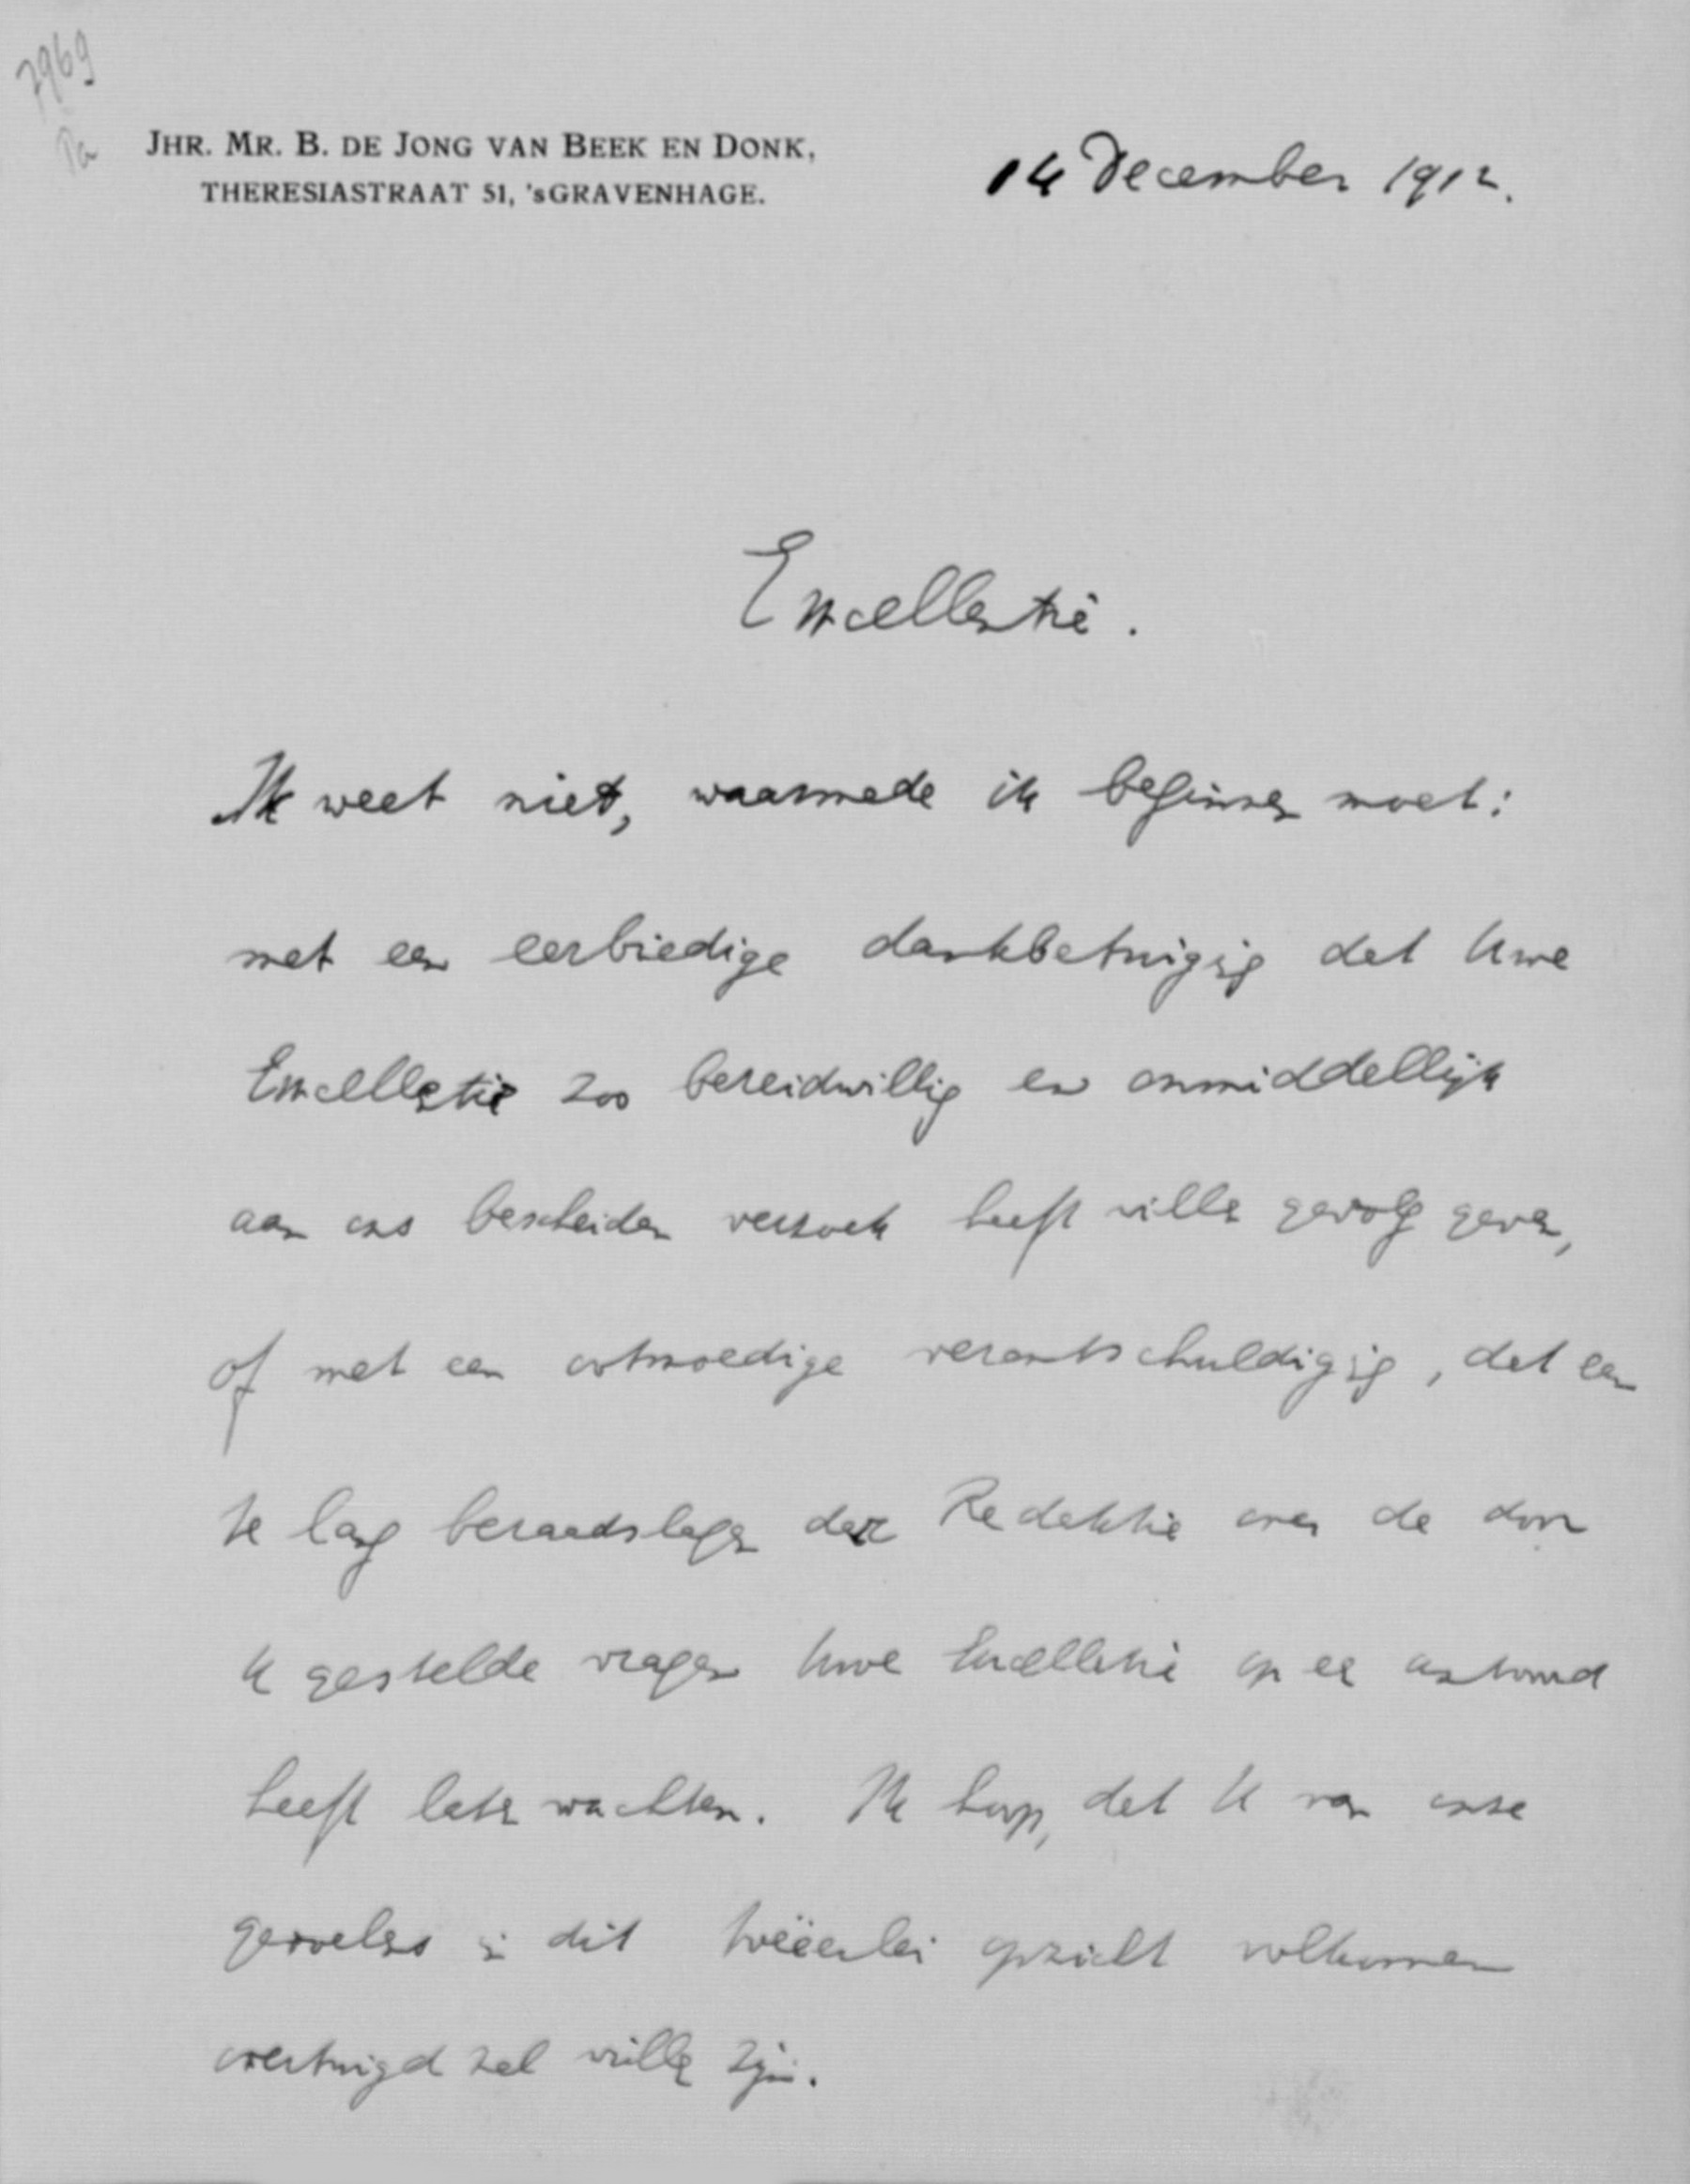 7969
Pa
JHR. MR. B. DE JONG VAN BEEK EN DONK,
THERESIASTRAAT 51, 'sGRAVENHAGE.
14 December 1912.
Excellentie.
Ik weet niet, waarmede ik beginnen moet:
met een eerbiedige dankbetuiging dat Uwe
Excellentie zoo bereidwillig en onmiddellijk
aan ons bescheiden verzoek heeft willen gevolg geven,
of met een ootmoedige verontschuldiging, dat een
te lang beraadslagen der Redaktie over de door
U gestelde vragen Uwe Excellentie op een antwoord
heeft laten wachten. Ik hoop, dat U van onze
gevoelens in dit tweëerlei opzicht volkomen
overtuigd zal willen zijn.